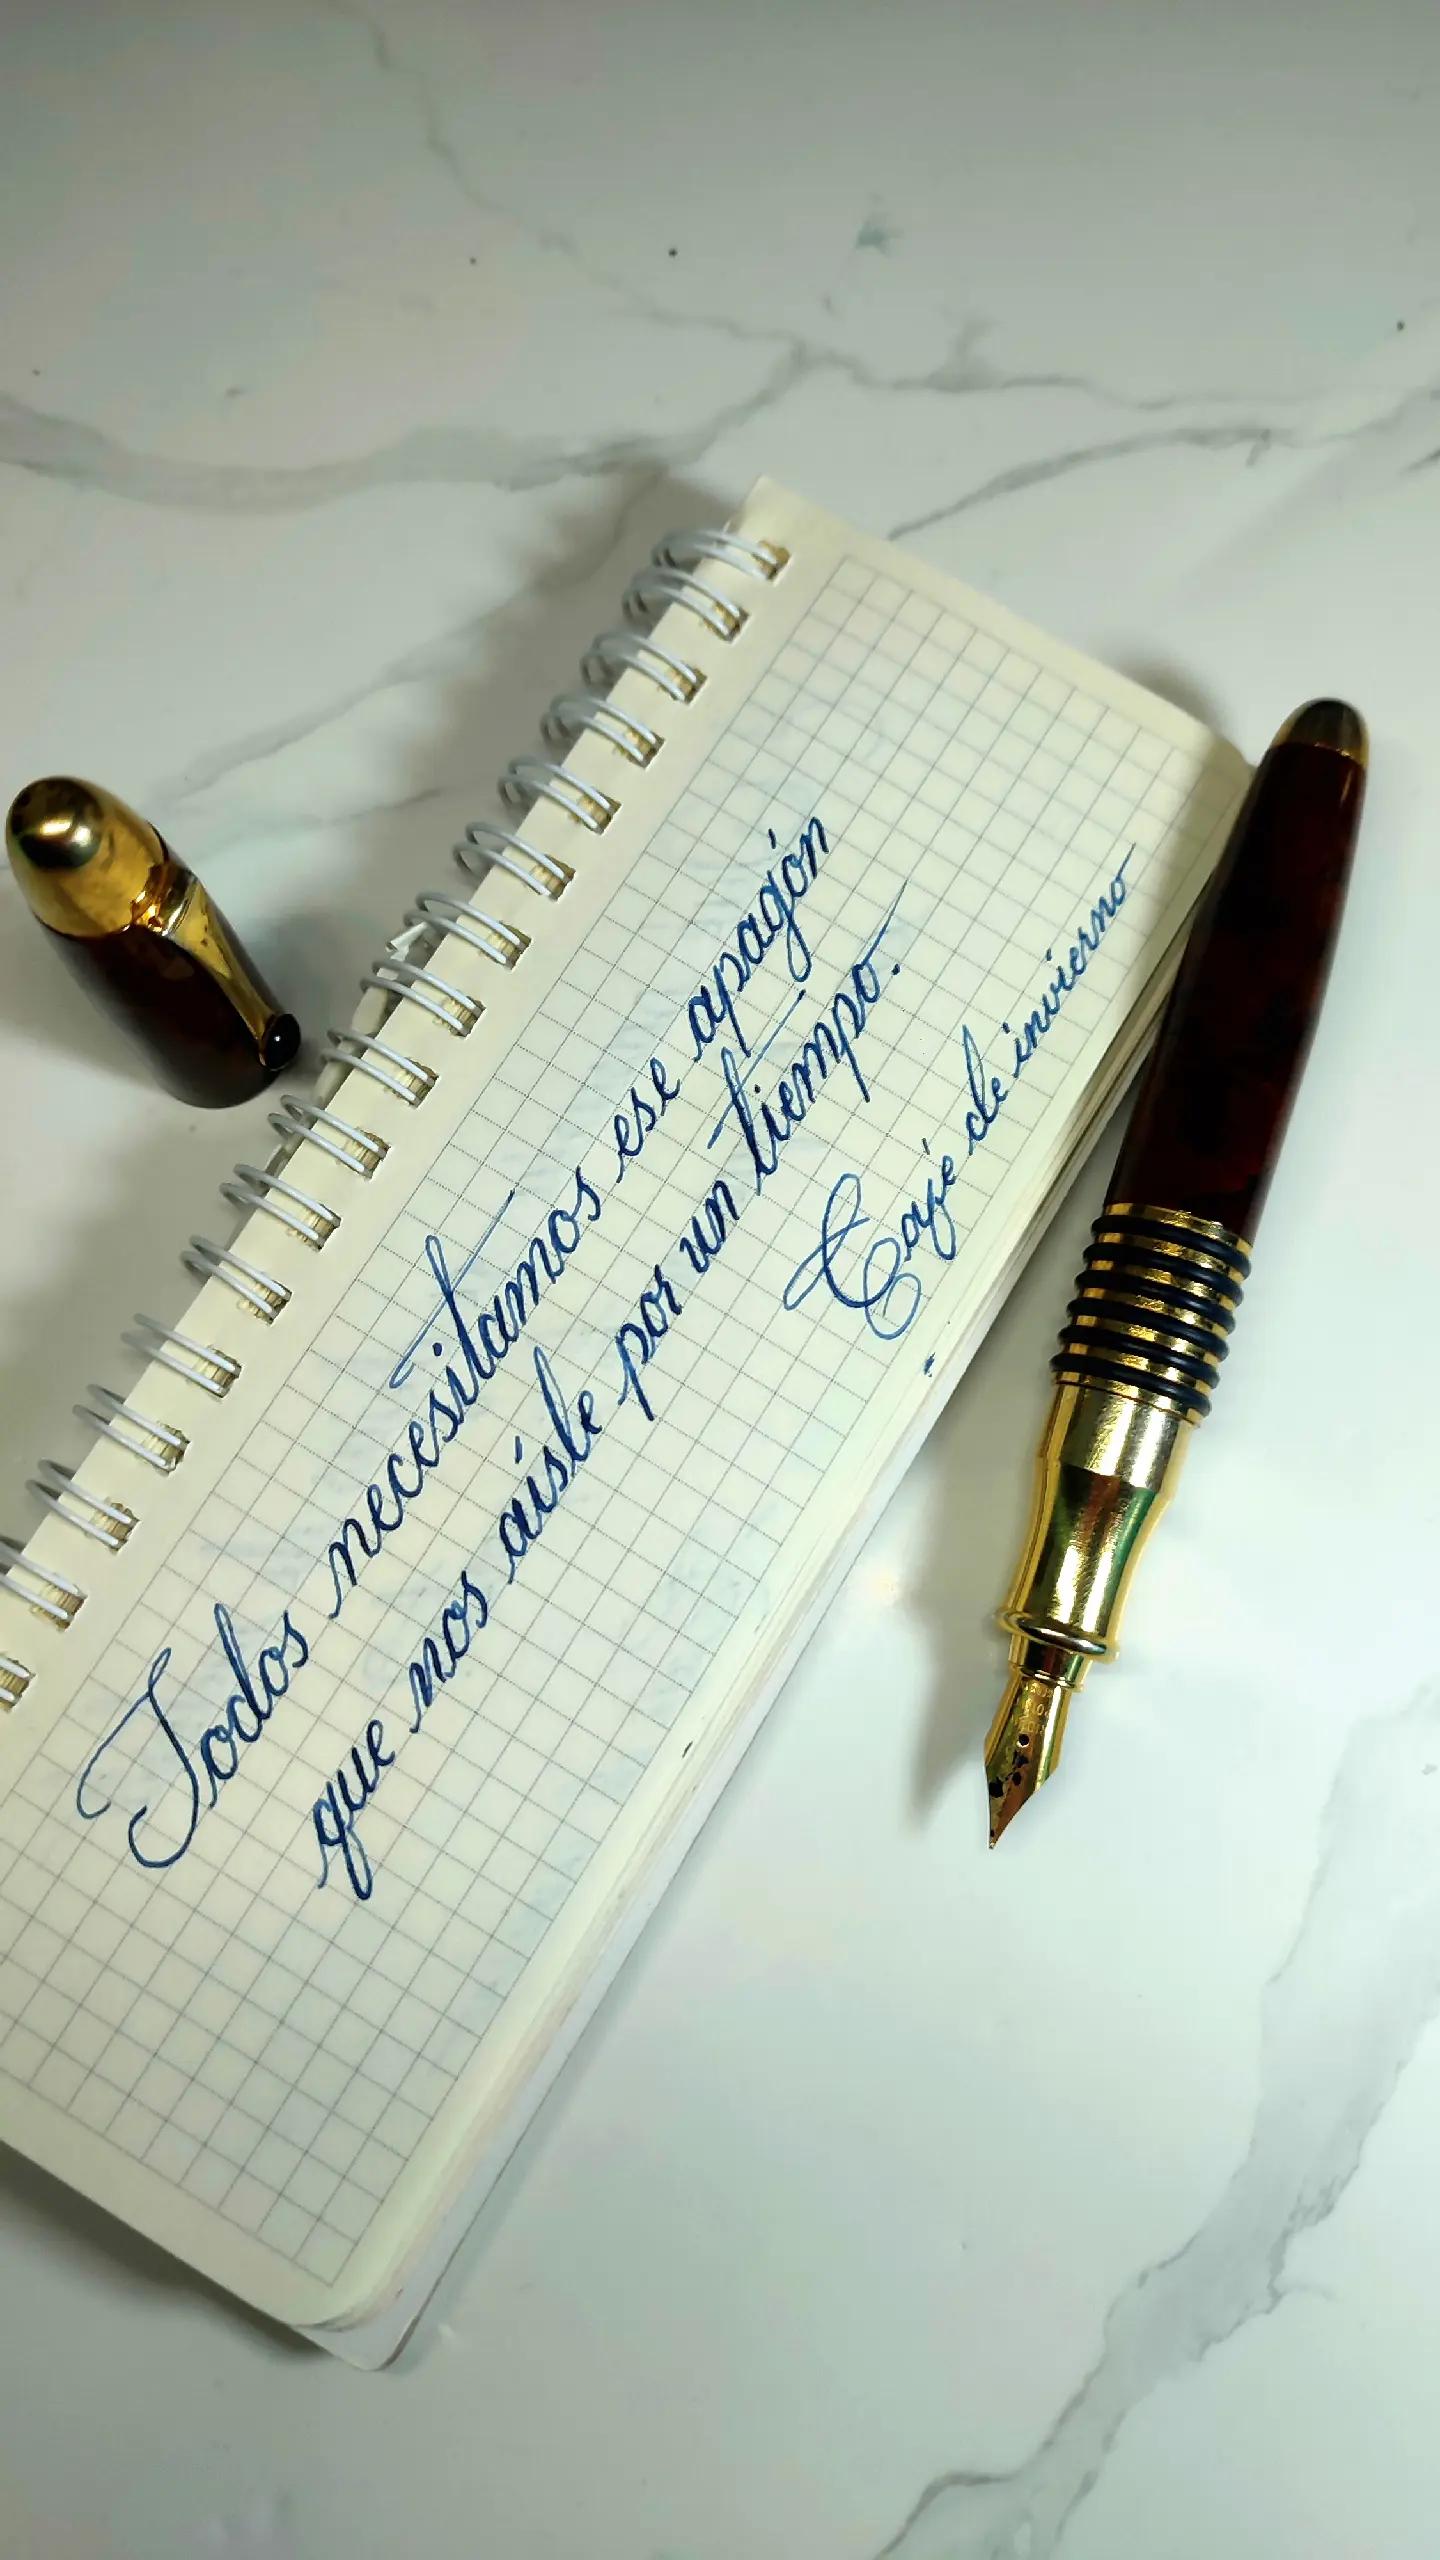 Todos necesitamos ese apagón
que nos aísle por un tiempo.
Café de invierno